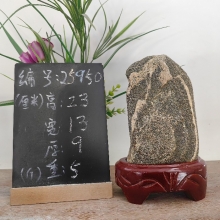 编号:25950
(厘米)高:23
宽:13
厚:9
(斤)重:5